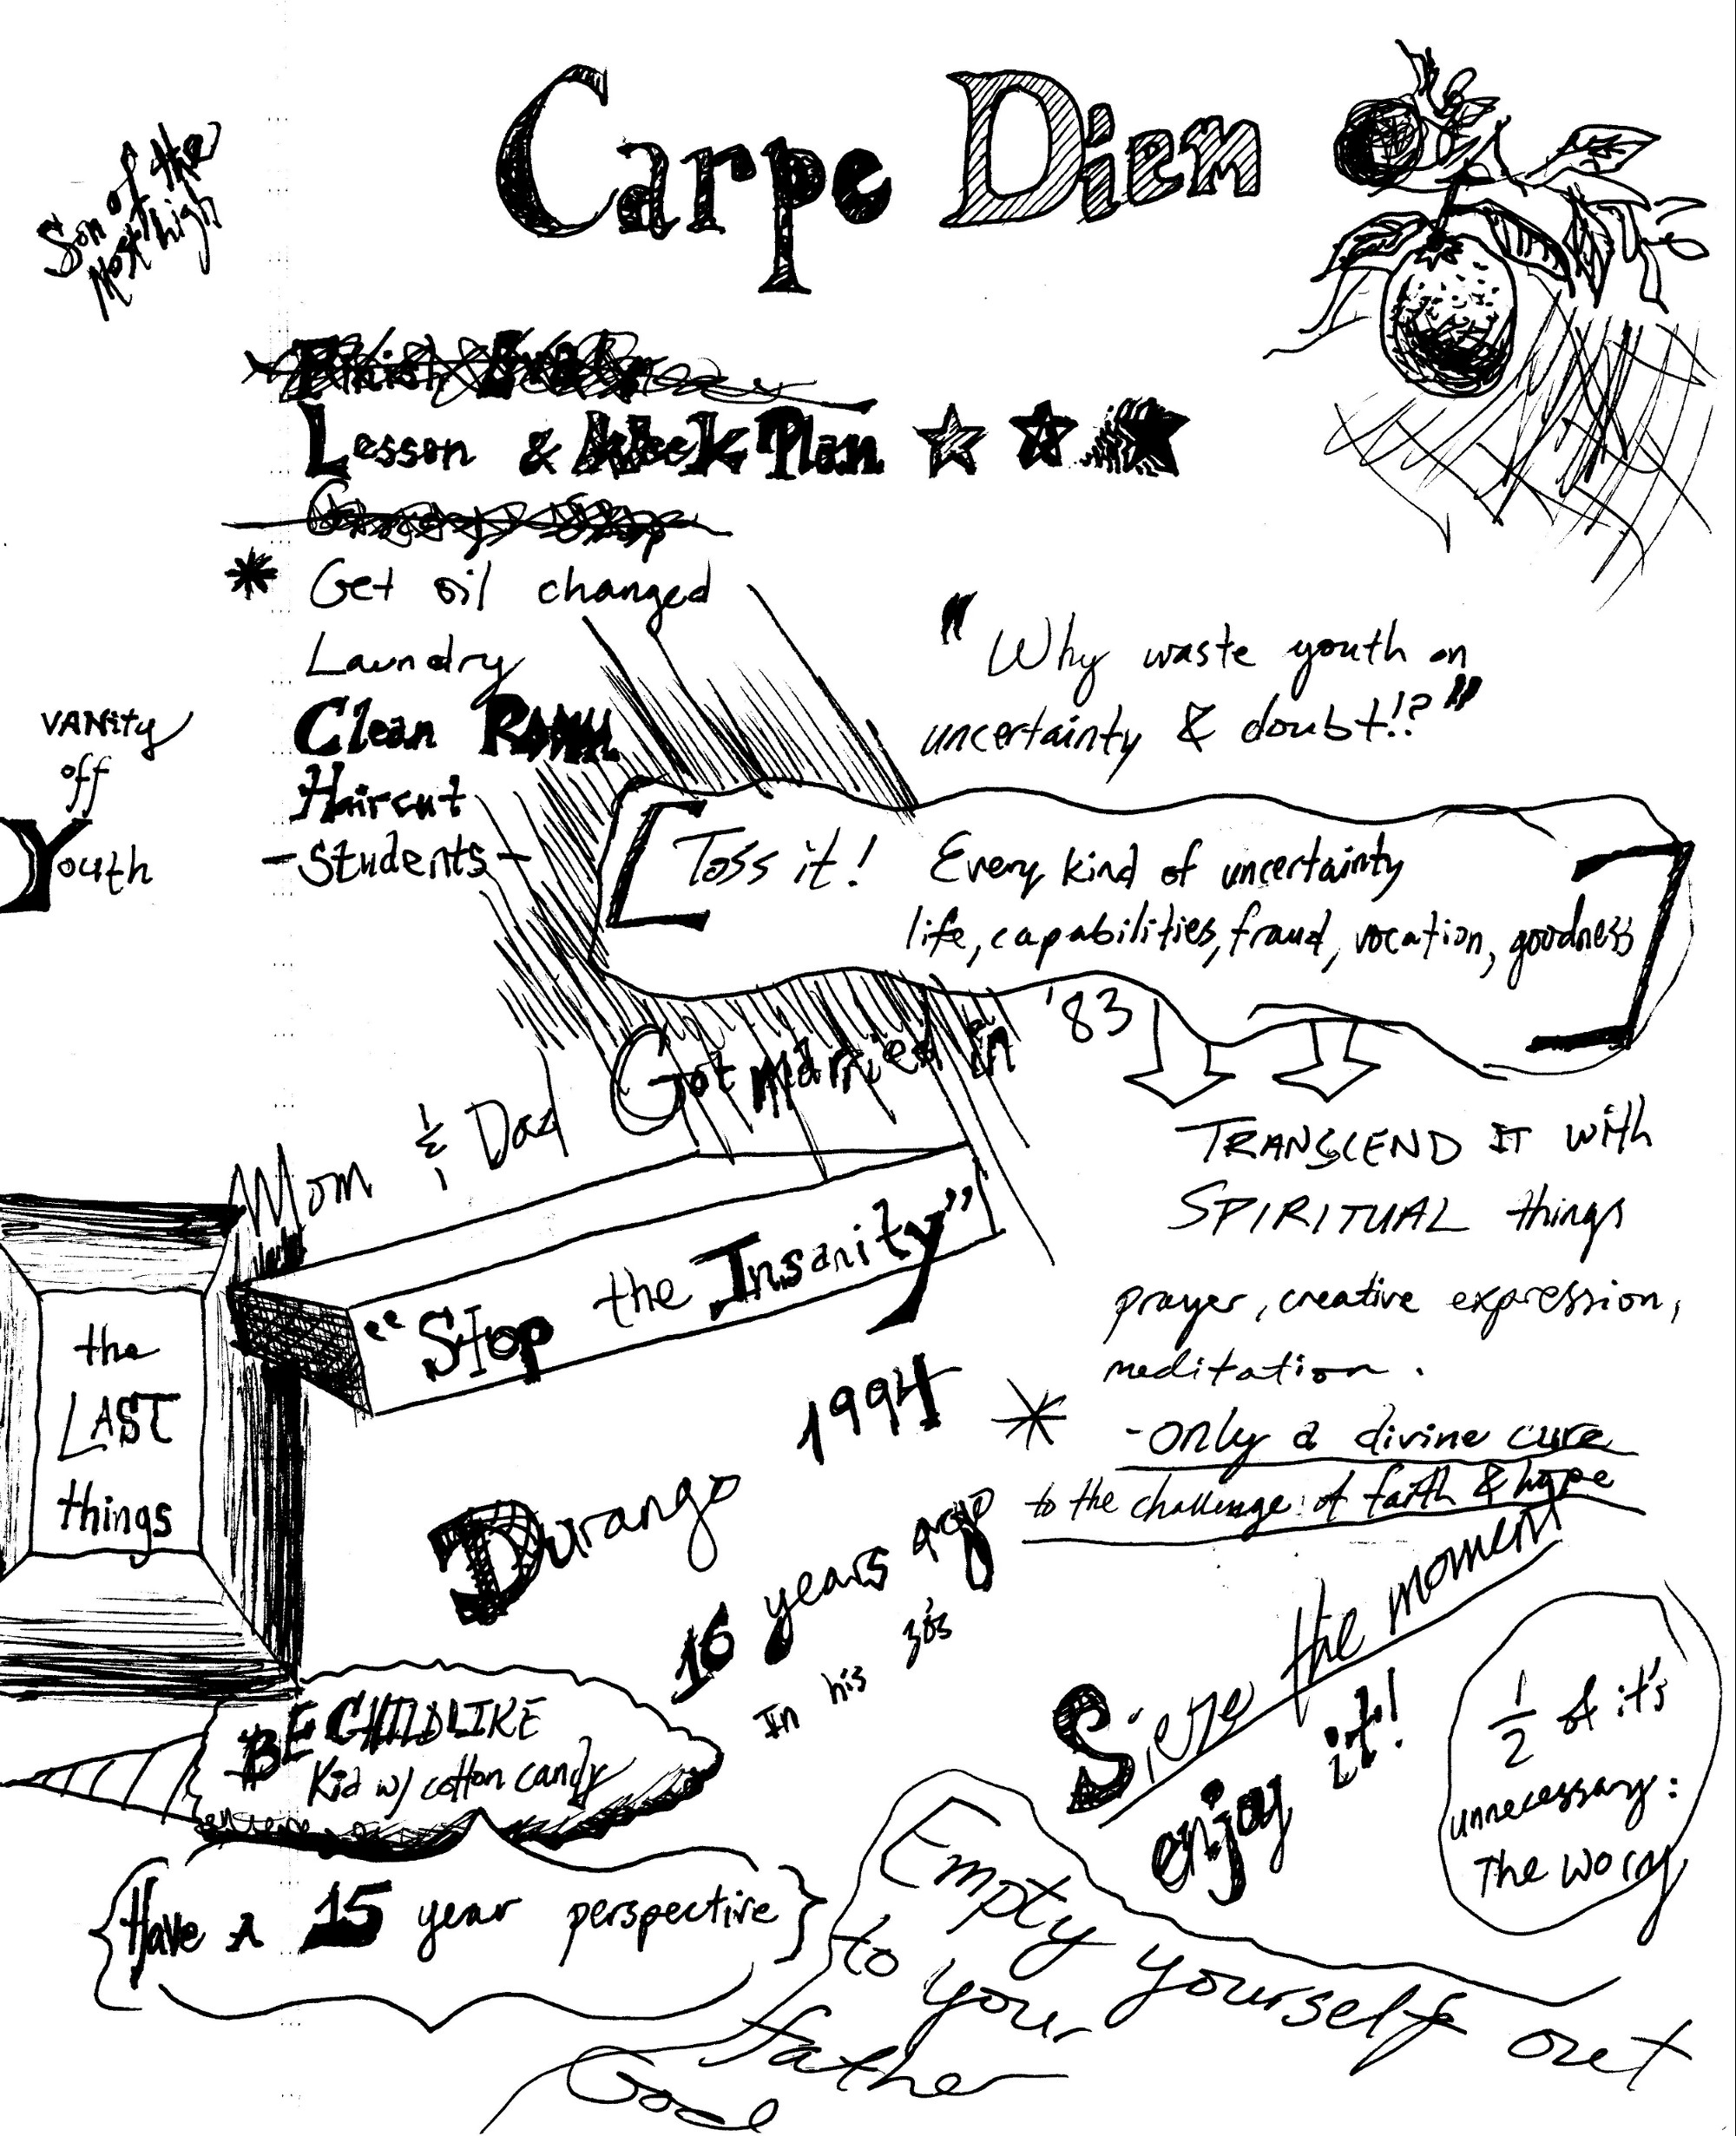 Carpe Diem
Son of the
Most high
Finish
Lesson & Week Plan
Get oil changed
Laundry
Clean Room
Haircut
-Students-
VANity
off
Youth
"Why waste youth on
uncertainty & doubt!?"
Toss it! Every kind of uncertainty
life, capabilities, fraud, vocation, goodness
Mom & Dad Got married in '83
TRANSCEND IT with
SPIRITUAL things
prayer, creative expression,
meditation.
-only a divine cure
to the challenge of faith & hope
"Stop the Insanity"
the
LAST
things
Durango 1994
16 years ago
In his 30s
Sieze the moment
enjoy it!
1/2 of it's
unnecessary:
The worry
BE CHILDLIKE
Kid w/ cotton candy
{Have A 15 year perspective}
Empty yourself out
to your
father
God